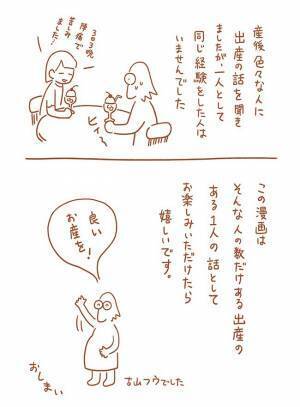 産後 色々な人に
出産の話を聞き
ましたが、一人として
同じ経験をした人は
いませんでした
3日3晩
陣痛で
苦しみ
ました!
ヒィ〜
この漫画は
そんな人の数だけある出産の
ある1人の話として
お楽しみいただけたら
嬉しいです。
良い
お産を!
吉山フウでした
おしまい